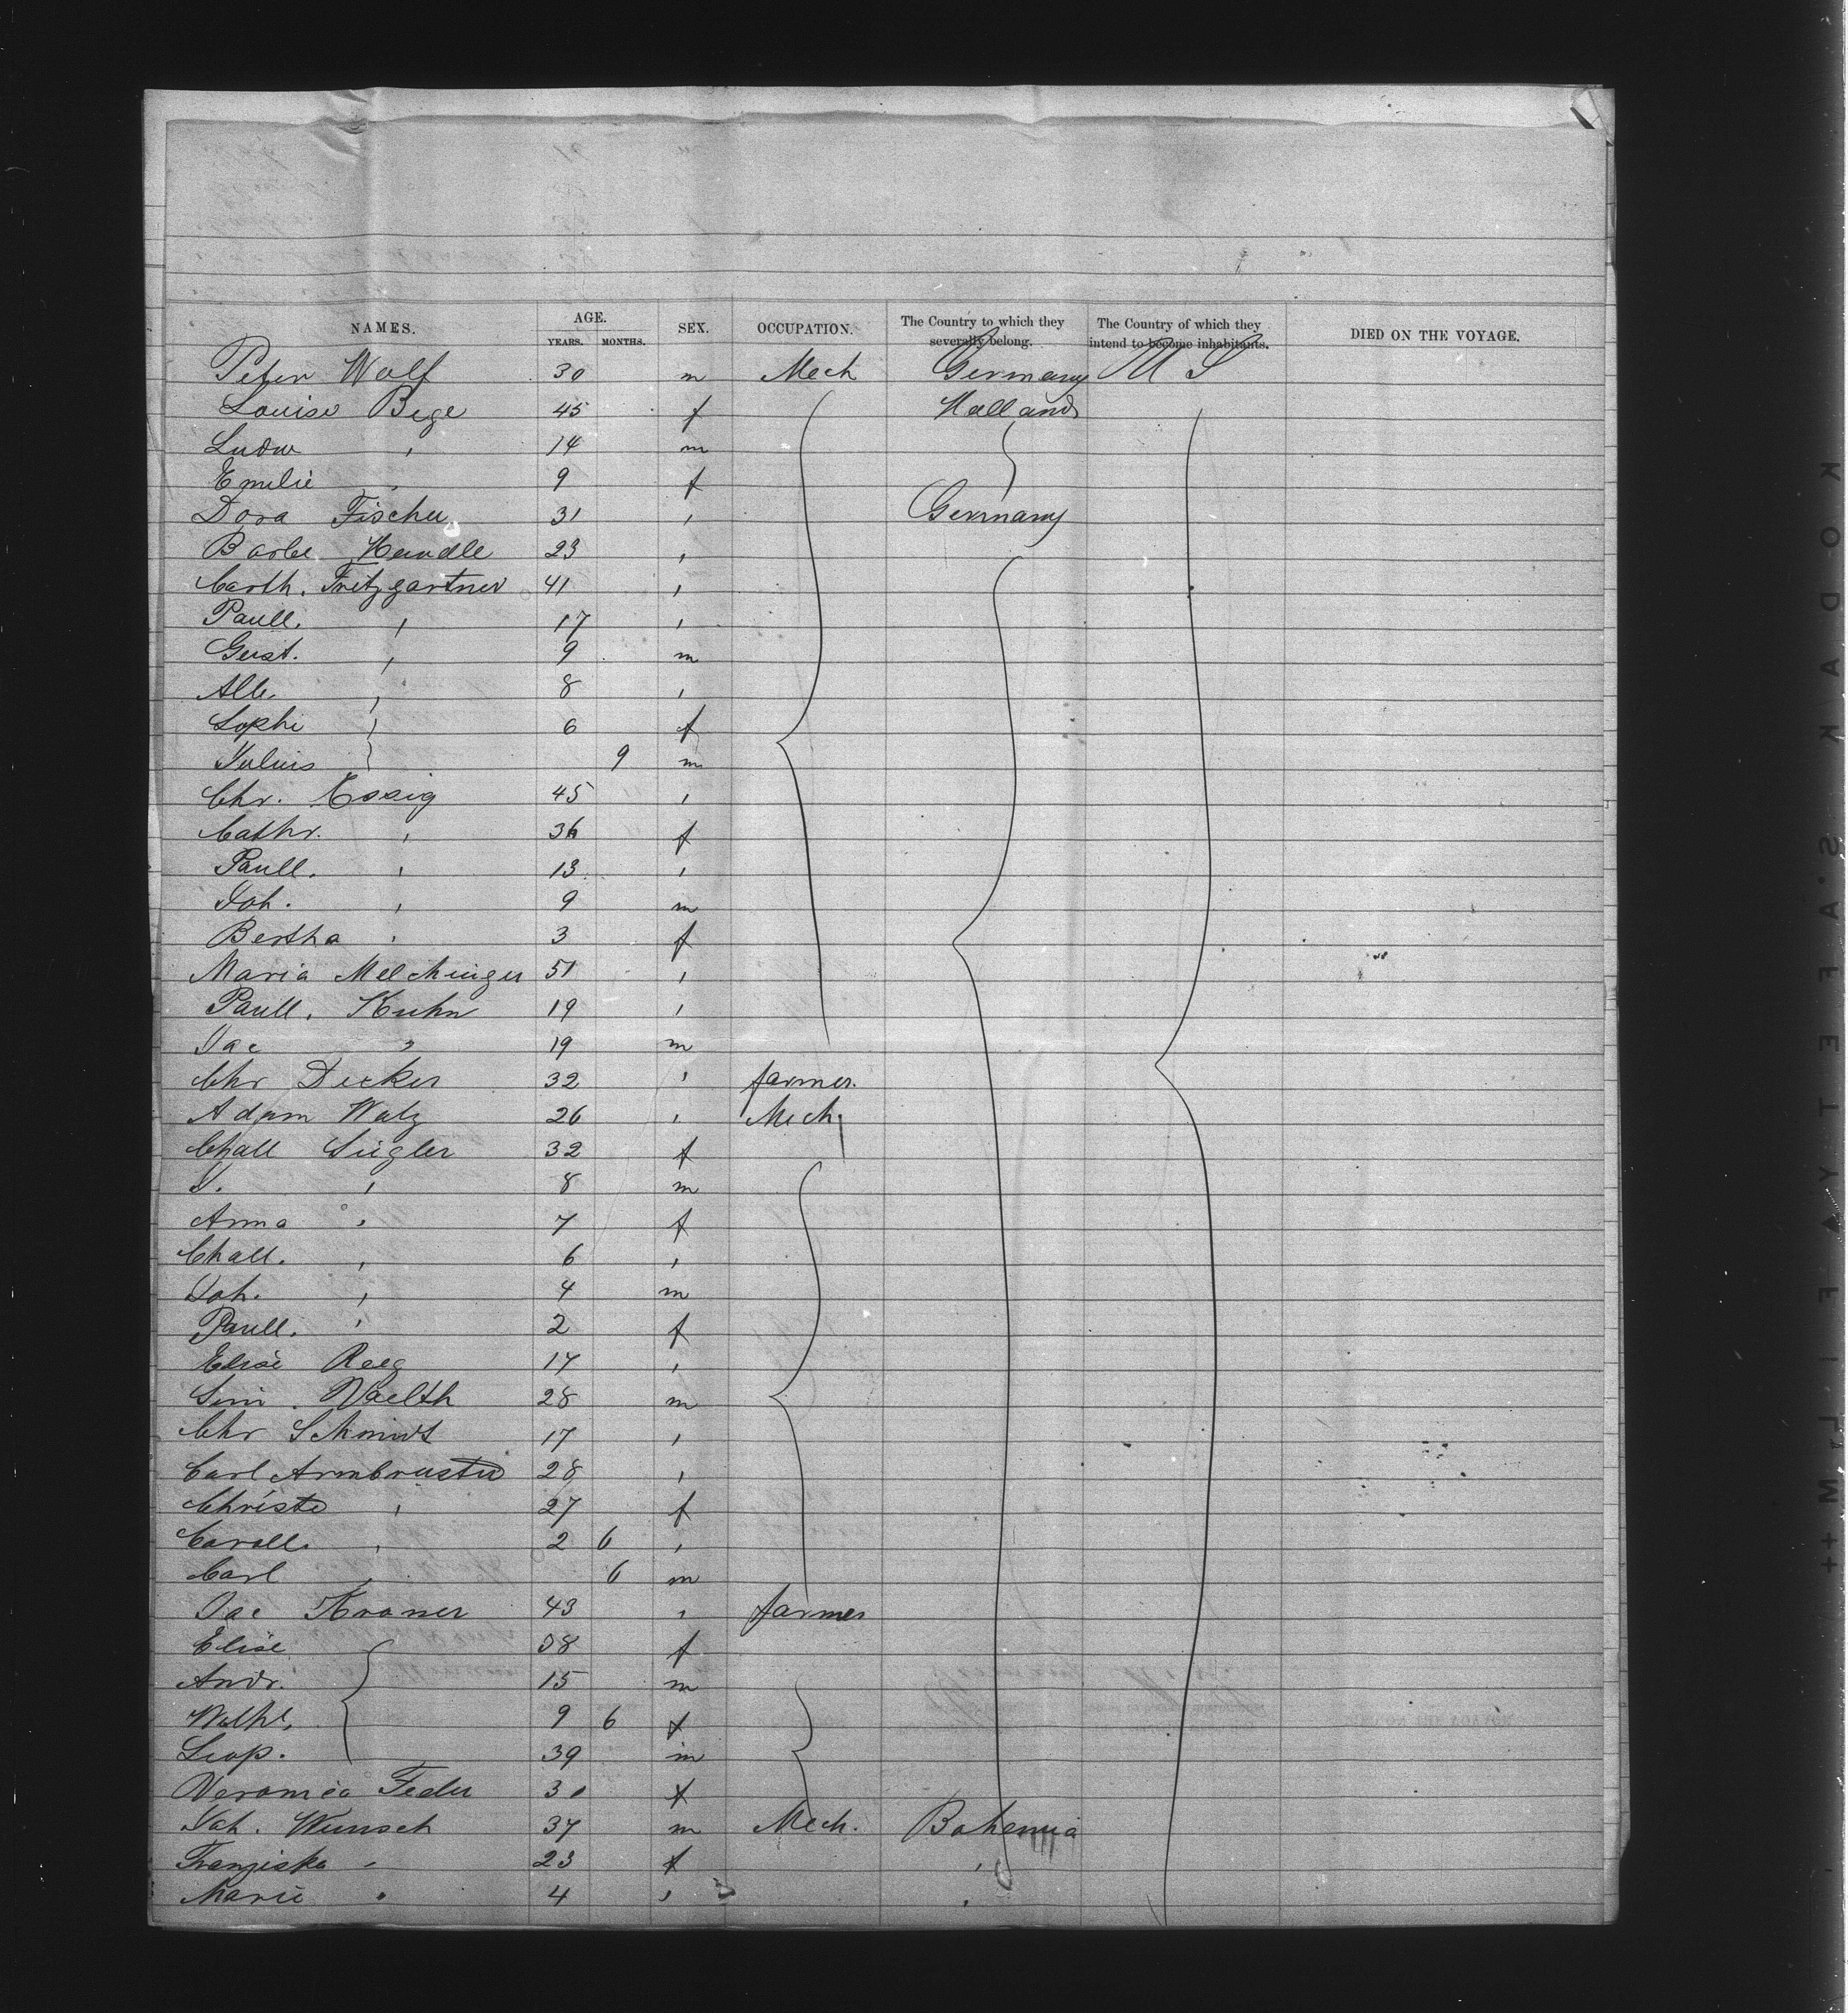 NAMES. AGE. YEARS. MONTHS. SEX. OCCUPATION. The Country to which they severally belong. The Country of which they intend to become inhabitants. DIED ON THE VOYAGE.
Peter Wolf 30 m Mech Germany U S
Louise Bege 45 f Holland
Ludw " 14 m
Emilie " 9 f
Dora Fischer 31 " Germany
Barbe Haudle 23 "
Cath. Fritzgartner 41 "
Paull. " 17 "
Gust. " 9 m
Alb. " 8 "
Sophi " 6 f
Julius 9 m
Chr. Essig 45 "
Cathr. " 36 f
Paull. " 13 "
Joh. " 9 m
Bertha " 3 f
Maria Melchinger 51 "
Paull. Kuhn 19 "
Jac " 19 m
Chr Decker 32 " farmer.
Adam Walz 26 " Mech.
Chall Siegler 32 f
J. " 8 m
Anna " 7 f
Chall. " 6 "
Joh. " 4 m
Paull. " 2 f
Elise Roeg 17 "
Sim. Vaelth 28 m
Chr Schmidt 17 "
Carl Armbruster 28 "
Christe " 27 f
Caroll. " 2 6 "
Carl " 6 m
Jac Kroner 43 " farmer
Elise 38 f
Andr. 15 m
Wilhl. 9 6 f
Leop. 39 m
Veronica Feder 30 f
Joh. Wunsch 37 m Mech. Bohemia
Franziska " 23 f "
Marie " 4 " "
KODAK·S·A·F·E·T·Y